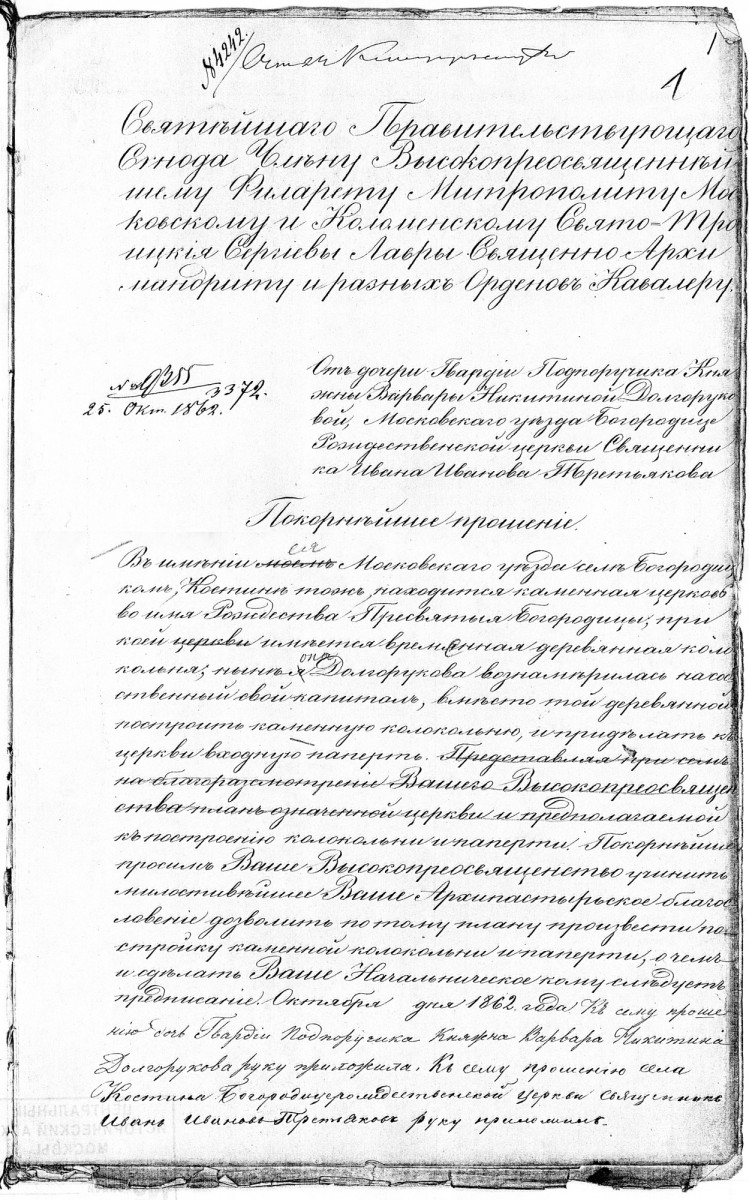 1
№ 4242.
1
Святѣйшаго Правительствующаго
Сѵнода Члѣну Высокопреосвященнѣй
шему Филарету Митрополиту Мос
ковскому и Коломенскому Свято-Тро
ицкія Сергіевы Лавры Священно Архи
мандриту и разныхъ Орденовъ Кавалеру.
3372.
25. Окт. 1862.
Отъ дочери Гвардіи Подпоручика Кня
жны Варвары Никитиной Долгоруко
вой, Московскаго уѣзда Богородице
Рождественской церкви Священни
ка Ивана Иванова Третьякова
Покорнѣйшее прошеніе.
сея
Въ имѣніи моемъ Московскаго уѣзда селѣ Богородиц
комъ, Костинѣ тожъ, находится каменная церковь
во имя Рождества Пресвятыя Богородицы, при
коей церкви имѣется временная деревянная коло
она
кольня; нынѣ я Долгорукова вознамѣрилась на соб
ственный свой капиталъ, вмѣсто той деревянной
построить каменную колокольню, и придѣлать къ
церкви входную паперть. Представляя при семъ
на благоразсмотреніе Вашего Высокопреосвящен
ства планъ означенной церкви и предполагаемой
къ построенію колокольни и паперти. Покорнѣйше
просимъ Ваше Высокопреосвященство учинить
милостивѣйшее Ваше Архипастырьское благос
ловеніе дозволить по тому плану произвести по
стройку каменной колокольни и паперти, о чемъ
и сдѣлать Ваше Начальническое кому слѣдуетъ
предписаніе. Октября дня 1862 года Къ сему проше
нію дочь Гвардіи Подпоручика Княжна Варвара Никитина
Долгорукова руку приложила. Къ сему прошенію села
Костина Богородицерождественской Церкви Священникъ
Иванъ Ивановъ Третьяковъ руку приложилъ.
ЦЕНТРАЛЬНЫЙ
ИСТОРИЧЕСКИЙ АРХИВ
МОСКВЫ